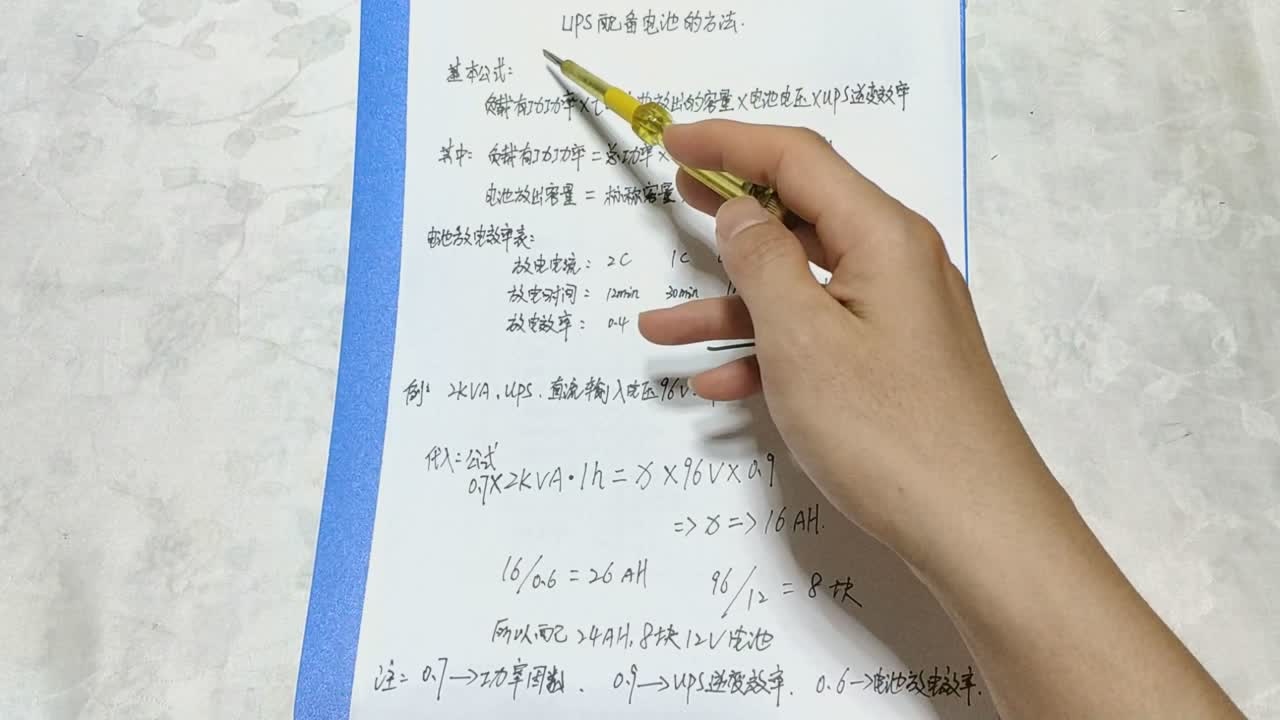 UPS配备电池的方法.
基本公式:
负载有功功率×电池放出的容量×电池电压×UPS逆变效率
其中: 负载有功功率=总功率×
电池放出容量=标称容量
电池放电效率表:
放电电流: 2C 1C
放电时间: 12min 30min
放电效率: 0.4
例: 2KVA.UPS.直流输入电压96V.
代入=公式
0.7×2KVA·1h=x×96V×0.9
=>x=>16AH.
16/0.6=26AH 96/12=8块
所以配24AH,8块12V电池
注: 0.7→功率因数. 0.9→UPS逆变效率. 0.6→电池放电效率.